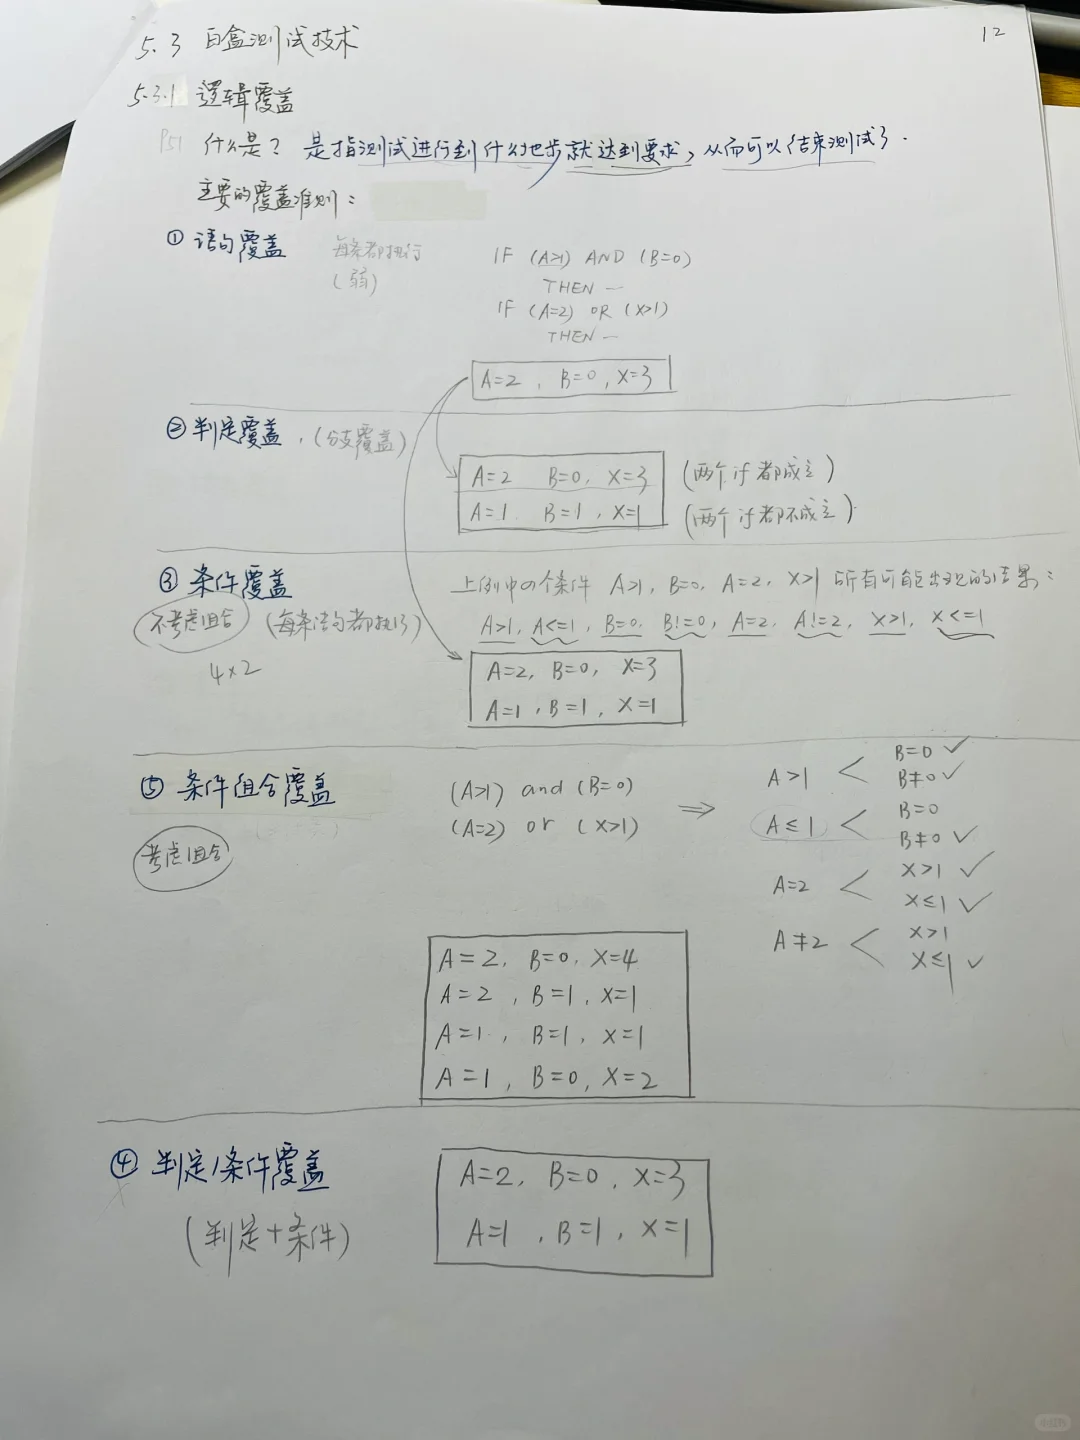 12
5.3 白盒测试技术
5.3.1 逻辑覆盖
P51 什么是? 是指测试进行到什么地步就达到要求,从而可以结束测试了.
主要的覆盖准则:
① 语句覆盖 每条都执行
(弱)
IF (A>1) AND (B=0)
THEN —
IF (A=2) OR (X>1)
THEN —
A=2, B=0, X=3
② 判定覆盖.(分支覆盖)
A=2 B=0, X=3 (两个if都成立)
A=1. B=1, X=1 (两个if都不成立).
③ 条件覆盖 上例中4个条件 A>1, B=0, A=2, X>1 所有可能出现的结果:
不考虑组合 (每条语句都执行) A>1, A<=1, B=0, B!=0, A=2, A!=2, X>1, X<=1
4×2
A=2, B=0, X=3
A=1, B=1, X=1
⑤ 条件组合覆盖
考虑组合
(A>1) and (B=0)
(A=2) or (X>1)
⇒
A>1 < B=0 ✓
B≠0 ✓
A≤1 < B=0
B≠0 ✓
A=2 < X>1 ✓
X≤1 ✓
A≠2 < X>1
X≤1 ✓
A=2, B=0, X=4
A=2, B=1, X=1
A=1, B=1, X=1
A=1, B=0, X=2
④ 判定/条件覆盖
(判定+条件)
A=2, B=0, X=3
A=1, B=1, X=1
小红书